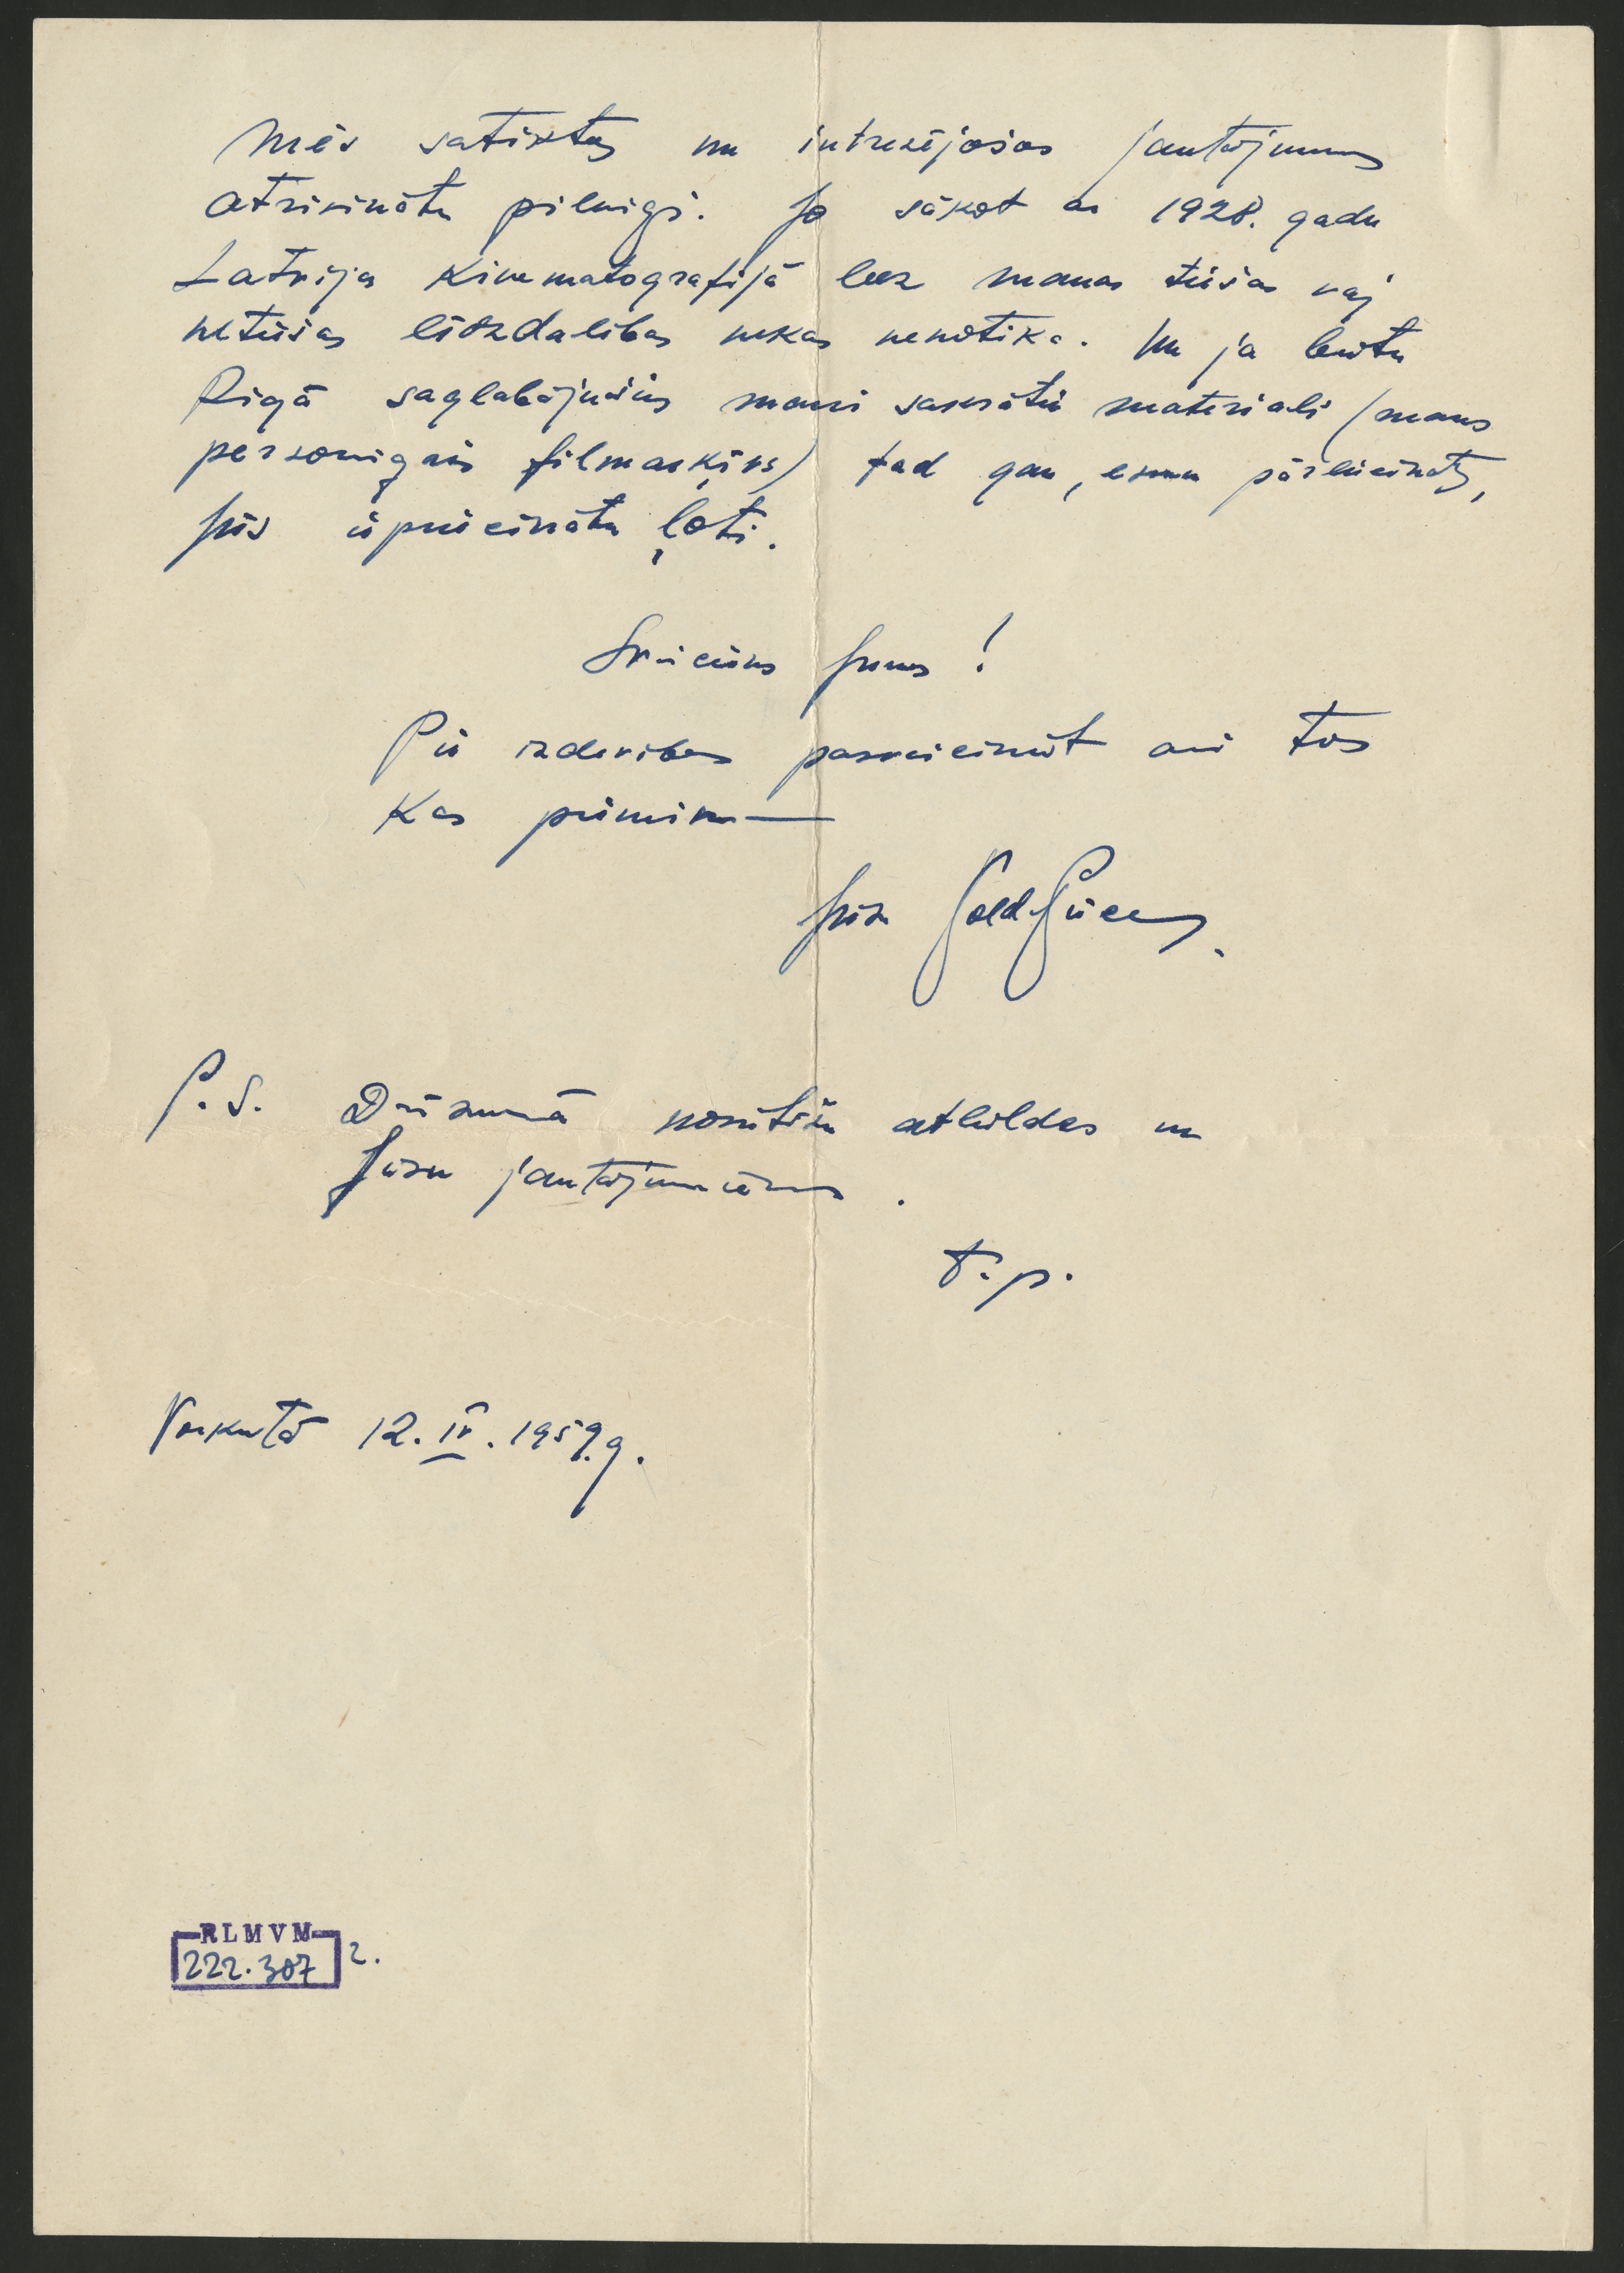 Mēs satiktos un intresējošos jautājumus
atrisinātu pilnigi. Jo sākot ar 1928. gadu
Latvijas Kinematografijā bez manas tiešas vaj
netiešas līdzdalibas nekas nenotika. Un ja būtu
Rigā saglabājušies mani sakrātie materiali (mans
personigais filmarķivs) tad gan, esmu pārliecināts,
Jūs iepriecinātu ļoti.
Sveiciens Jums!
Pie izdevibas pasveicināt arī tos
Kas piemin—
Jūsu
P.S. Drīzumā nosūtīšu atbildes un
Jūsu jautājumiem.
T. p.
Vorkutā 12. IV. 1959.g.
RLMVM
222.307 2.